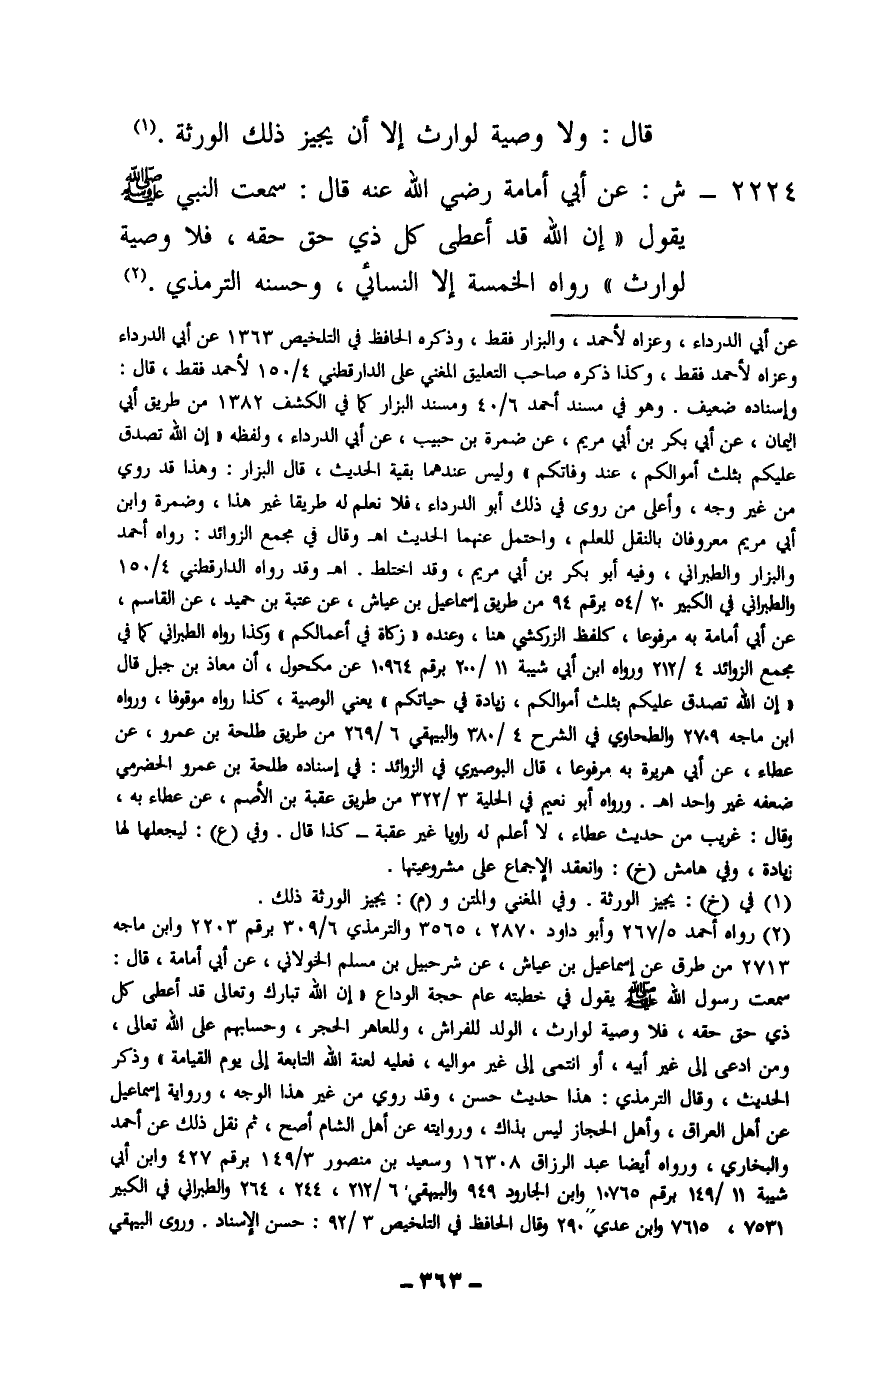 قال : ولا وصية لوارث إلا أن يجيز ذلك الورثة .(١)
٢٢٢٤ – ش : عن أبي أمامة رضي الله عنه قال : سمعت النبي ﷺ
يقول « إن الله قد أعطى كل ذي حق حقه ، فلا وصية
لوارث » رواه الخمسة إلا النسائي ، وحسنه الترمذي .(٢)
عن أبي الدرداء ، وعزاه لأحمد ، والبزار فقط ، وذكره الحافظ في التلخيص ١٣٦٣ عن أبي الدرداء
وعزاه لأحمد فقط ، وكذا ذكره صاحب التعليق المغني على الدارقطني ١٥٠/٤ لأحمد فقط ، قال :
وإسناده ضعيف . وهو في مسند أحمد ٤٠/٦ ومسند البزار كما في الكشف ١٣٨٢ من طريق أبي
اليمان ، عن أبي بكر بن أبي مريم ، عن ضمرة بن حبيب ، عن أبي الدرداء ، ولفظه « إن الله تصدق
عليكم بثلث أموالكم ، عند وفاتكم » وليس عندهما بقية الحديث ، قال البزار : وهذا قد روي
من غير وجه ، وأعلى من روى في ذلك أبو الدرداء ، فلا نعلم له طريقا غير هذا ، وضمرة وابن
أبي مريم معروفان بالنقل للعلم ، واحتمل عنهما الحديث اهـ وقال في مجمع الزوائد : رواه أحمد
والبزار والطبراني ، وفيه أبو بكر بن أبي مريم ، وقد اختلط . اهـ وقد رواه الدارقطني ١٥٠/٤
والطبراني في الكبير ٥٤/٢٠ برقم ٩٤ من طريق إسماعيل بن عياش ، عن عتبة بن حميد ، عن القاسم ،
عن أبي أمامة به مرفوعا ، كلفظ الزركشي هنا ، وعنده « زكاة في أعمالكم » وكذا رواه الطبراني كما في
مجمع الزوائد ٢١٢/٤ ورواه ابن أبي شيبة ٢٠٠/١١ برقم ١٠٩٦٤ عن مكحول ، أن معاذ بن جبل قال
« إن الله تصدق عليكم بثلث أموالكم ، زيادة في حياتكم » يعني الوصية ، كذا رواه موقوفا ، ورواه
ابن ماجه ٢٧٠٩ والطحاوي في الشرح ٣٨٠/٤ والبيهقي ٢٦٩/٦ من طريق طلحة بن عمرو ، عن
عطاء ، عن أبي هريرة به مرفوعا ، قال البوصيري في الزوائد : في إسناده طلحة بن عمرو الحضرمي
ضعفه غير واحد اهـ . ورواه أبو نعيم في الحلية ٣٢٢/٣ من طريق عقبة بن الأصم ، عن عطاء به ،
وقال : غريب من حديث عطاء ، لا أعلم له راويا غير عقبة – كذا قال . وفي (ع) : ليجعلها لها
زيادة ، وفي هامش (خ) : وانعقد الإجماع على مشروعيتها .
(١) في (خ) : يجيز الورثة . وفي المغني والمتن و (م) : يجيز الورثة ذلك .
(٢) رواه أحمد ٢٦٧/٥ وأبو داود ٢٨٧٠ ، ٣٥٦٥ والترمذي ٣٠٩/٦ برقم ٢٢٠٣ وابن ماجه
٢٧١٣ من طرق عن إسماعيل بن عياش ، عن شرحبيل بن مسلم الخولاني ، عن أبي أمامة ، قال :
سمعت رسول الله ﷺ يقول في خطبته عام حجة الوداع « إن الله تبارك وتعالى قد أعطى كل
ذي حق حقه ، فلا وصية لوارث ، الولد للفراش ، وللعاهر الحجر ، وحسابهم على الله تعالى ،
ومن ادعى إلى غير أبيه ، أو انتمى إلى غير مواليه ، فعليه لعنة الله التابعة إلى يوم القيامة » وذكر
الحديث ، وقال الترمذي : هذا حديث حسن ، وقد روي من غير هذا الوجه ، ورواية إسماعيل
عن أهل العراق ، وأهل الحجاز ليس بذاك ، وروايته عن أهل الشام أصح ، ثم نقل ذلك عن أحمد
والبخاري ، ورواه أيضا عبد الرزاق ١٦٣٠٨ وسعيد بن منصور ١٤٩/٣ برقم ٤٢٧ وابن أبي
شيبة ١٤٩/١١ برقم ١٠٧٦٥ وابن الجارود ٩٤٩ والبيهقي ٢١٢/٦ ، ٢٤٤ ، ٢٦٤ والطبراني في الكبير
٧٥٣١ ، ٧٦١٥ وابن عدي ٢٩٠ وقال الحافظ في التلخيص ٩٢/٣ : حسن الإسناد . وروى البيهقي
– ٣٦٣ –